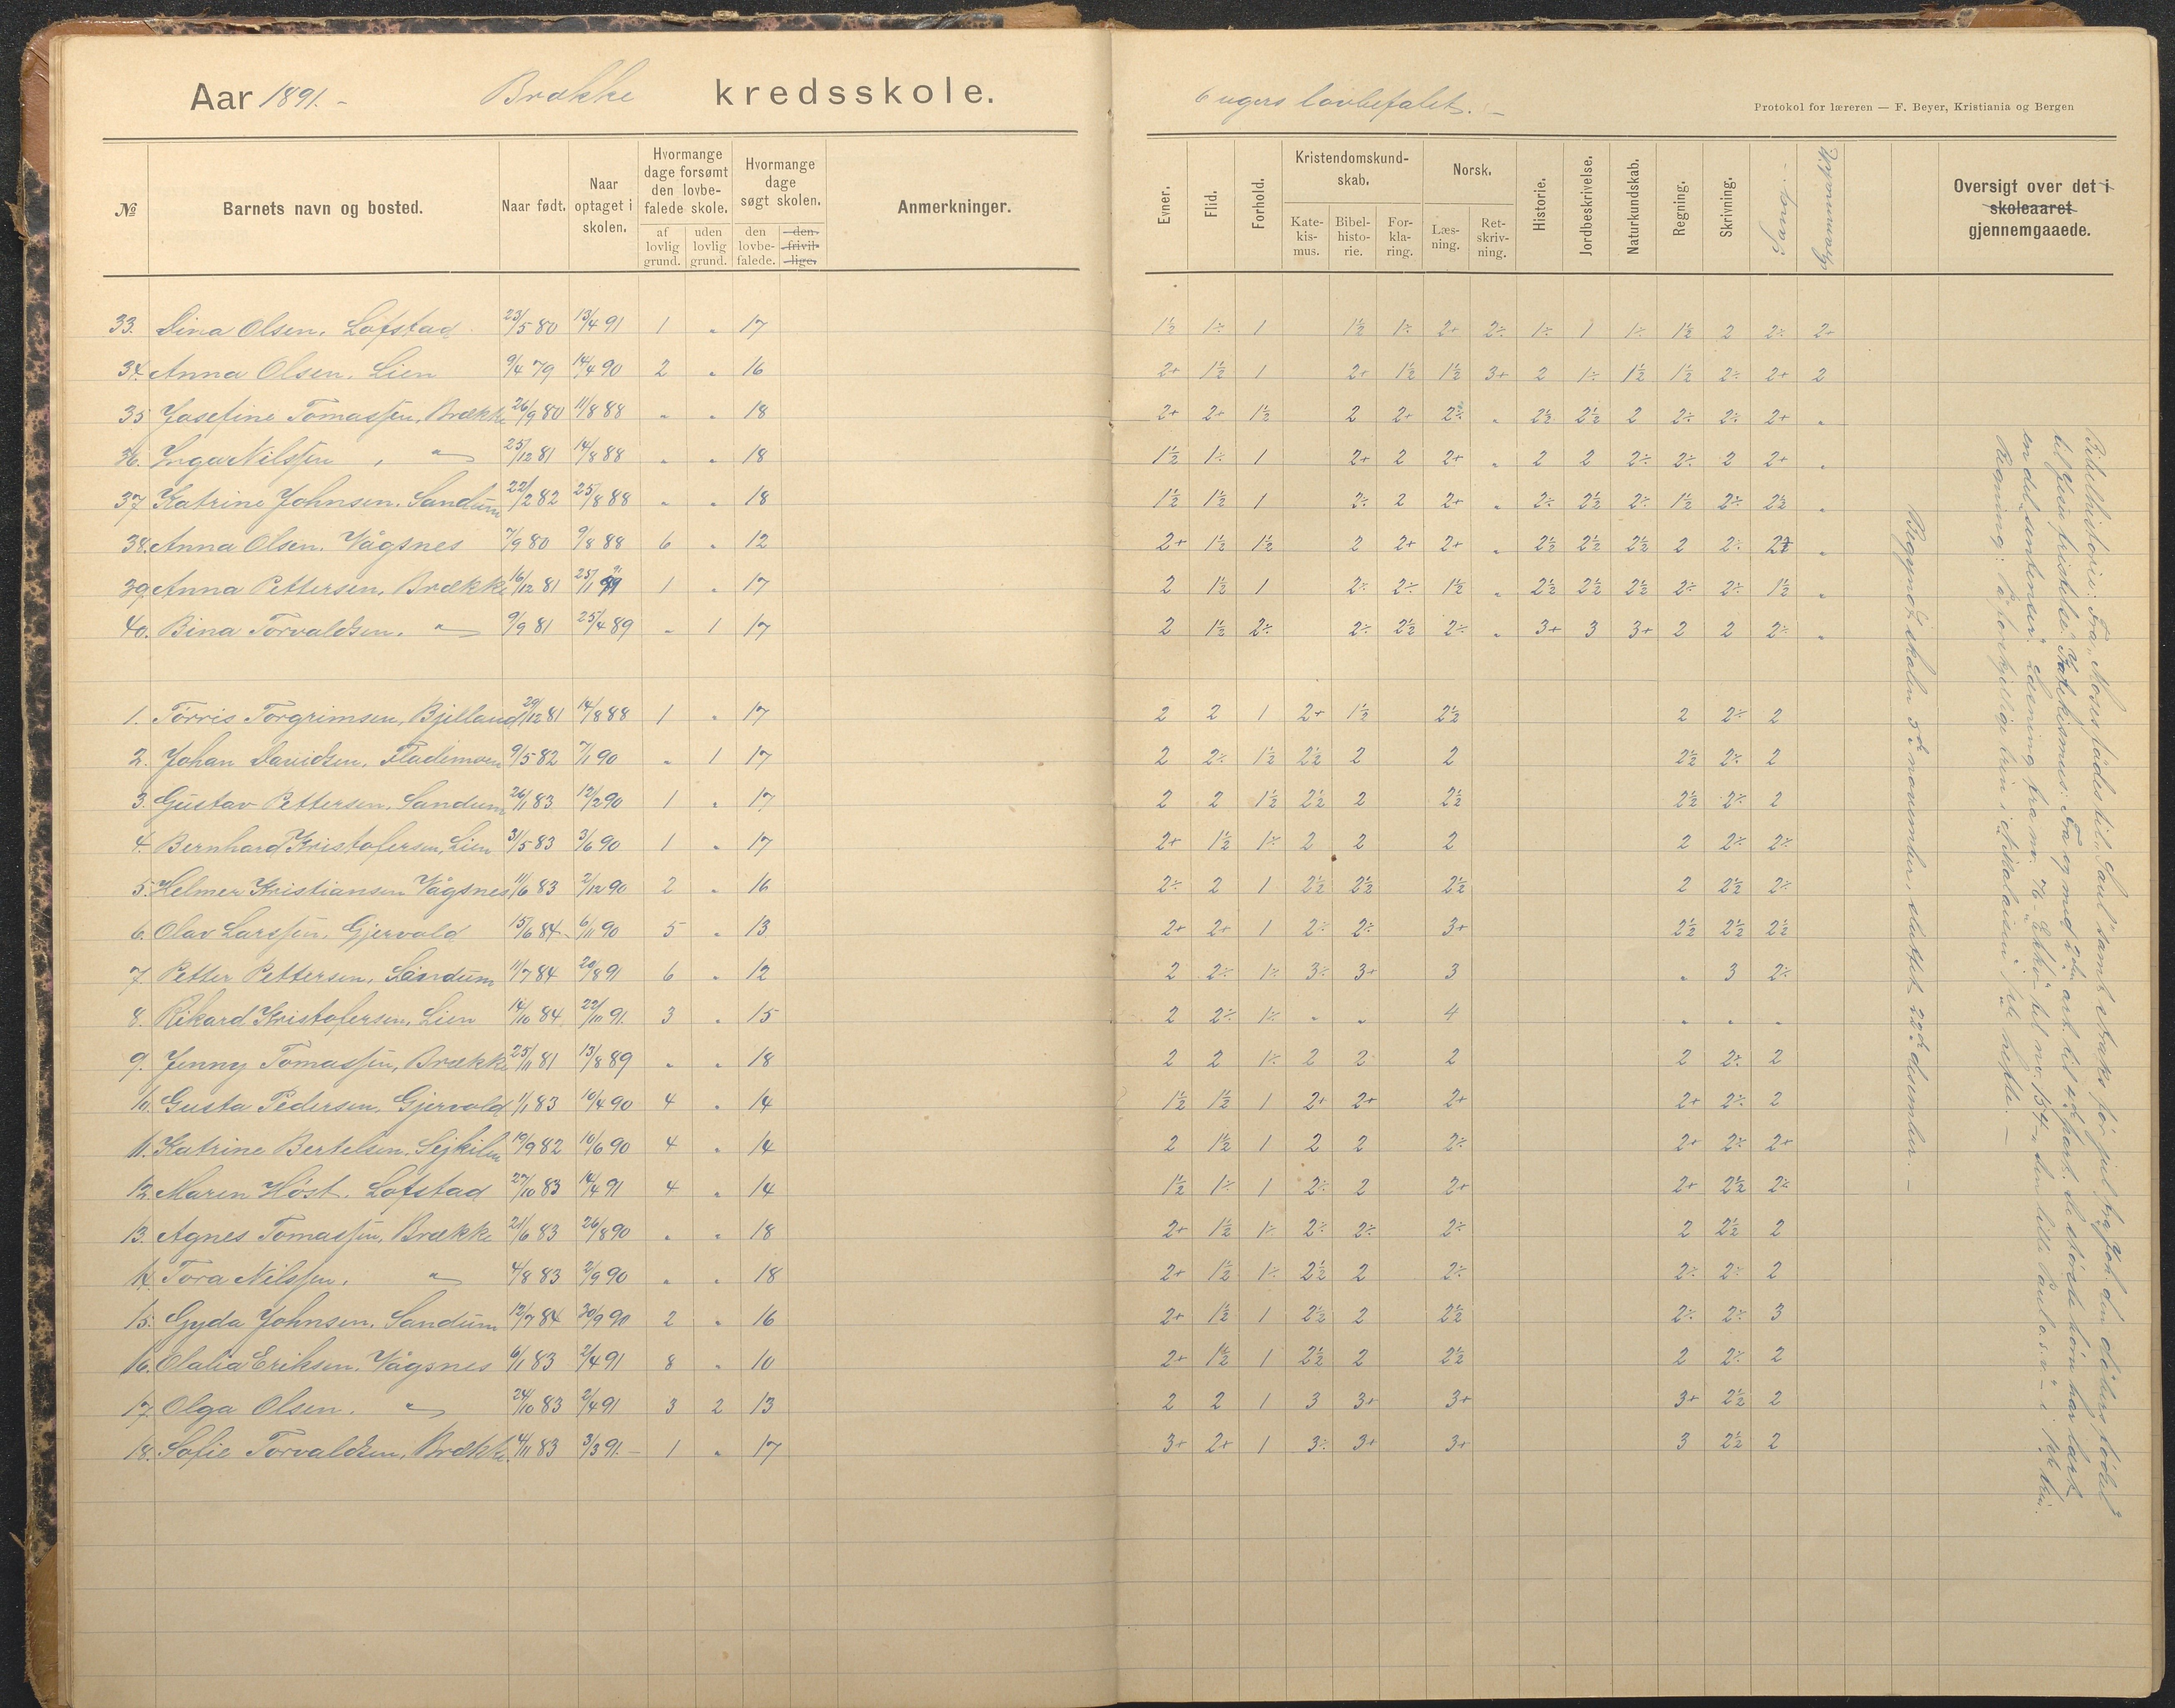 Aar 1891. - Brække kredsskole.
6 ugers lovbefalet. -
Protokol for læreren — F. Beyer, Kristiania og Bergen
№ Barnets navn og bosted. Naar født. Naar optaget i skolen. Hvormange dage forsømt den lovbefalede skole. af lovlig grund. uden lovlig grund. Hvormange dage søgt skolen. den lovbefalede. den frivillige. Anmerkninger.
Evner. Flid. Forhold. Kristendomskundskab. Katekismus. Bibelhistorie. Forklaring. Norsk. Læsning. Retskrivning. Historie. Jordbeskrivelse. Naturkundskab. Regning. Skrivning. Sang. Oversigt over det i skoleaaret gjennemgaaede.
33. Dina Olsen. Løfstad 23/5 80 13/4 91 1 „ 17 1½ 1÷ 1 1½ 1÷ 2+ 2÷ 1÷ 1 1÷ 1½ 2 2÷ 2+
34. Anna Olsen. Lien 9/4 79 14/4 90 2 „ 16 2+ 1½ 1 2+ 1½ 1½ 3+ 2 1÷ 1½ 1½ 2÷ 2+ 2
35 Josefine Tomassen, Brække 26/9 80 11/8 88 „ „ 18 2+ 2+ 1½ 2 2+ 2÷ „ 2½ 2½ 2 2÷ 2÷ 2+ „
36. Inga Nilssen , „ 25/12 81 14/8 88 „ „ 18 1½ 1÷ 1 2+ 2 2+ „ 2 2 2÷ 2÷ 2 2+ „
37 Katrine Johnsen. Sandum 22/2 82 25/8 88 „ „ 18 1½ 1½ 1 2÷ 2 2+ „ 2÷ 2½ 2÷ 1½ 2÷ 2½ „
38. Anna Olsen. Vågsnes 7/9 80 9/8 88 6 „ 12 2+ 1½ 1½ 2 2+ 2+ „ 2½ 2½ 2½ 2 2÷ 2½ „
39. Anna Pettersen, Brække 16/12 81 25/1 91 1 „ 17 2 1½ 1 2÷ 2÷ 1½ „ 2½ 2½ 2½ 2÷ 2÷ 1½ „
40. Bina Torvaldsen. „ 9/9 81 25/4 89 „ 1 17 2 1½ 2÷ 2÷ 2½ 2÷ „ 3+ 3 3+ 2 2 2÷ „
1. Tørris Torgrimsen, Bjelland 29/12 81 14/8 88 1 „ 17 2 2 1 2+ 1½ 2½ 2 2÷ 2
2. Johan Davidsen, Flademoen 9/5 82 7/1 90 „ 1 17 2 2÷ 1½ 2½ 2 2 2½ 2÷ 2
3. Gustav Pettersen, Sandum 26/1 83 12/2 90 1 „ 17 2 2 1½ 2½ 2 2½ 2½ 2÷ 2
4. Bernhard Kristofersen, Lien 31/5 83 3/6 90 1 „ 17 2+ 1½ 1÷ 2 2 2 2 2÷ 2÷
5. Helmer Kristiansen Vågsnes 11/6 83 2/12 90 2 „ 16 2÷ 2 1 2½ 2½ 2½ 2 2½ 2÷
6. Olav Larssen, Gjervold 15/6 84 6/11 90 5 „ 13 2+ 2+ 1 2÷ 2÷ 3+ 2½ 2½ 2½
7. Petter Pettersen, Sandum 11/7 84 20/8 91 6 „ 12 2 2÷ 1÷ 3÷ 3+ 3 „ 3 2÷
8. Rikard Kristofersen, Lien 14/10 84 22/11 91. 3 „ 15 2 2÷ 1÷ „ „ 4 „ „ „
9. Jenny Tomassen, Brække 25/11 81 13/8 89 „ „ 18 2 2 1÷ 2 2 2 2 2÷ 2
10. Gusta Pedersen, Gjervold 1/1 83 10/4 90 4 „ 14 1½ 1½ 1 2+ 2+ 2+ 2+ 2÷ 2
11. Katrine Bertelsen. Sejkilen 19/9 82 10/6 90 4 „ 14 2 1½ 1 2 2 2÷ 2+ 2÷ 2+
12. Maren Høst. Løfstad 27/10 83 14/4 91 4 „ 14 1½ 1÷ 1 2÷ 2 2+ 2+ 2½ 2÷
13. Agnes Tomassen, Brække 21/6 83 26/8 90 „ „ 18 2+ 1½ 1÷ 2÷ 2÷ 2÷ 2 2½ 2
14. Tora Nilssen. „ 4/8 83 2/9 90 „ „ 18 2+ 1½ 1÷ 2½ 2 2÷ 2÷ 2÷ 2
15. Gyda Johnsen. Sandum 12/7 84 30/9 90 2 „ 16 2+ 1½ 1 2½ 2 2½ 2÷ 2÷ 3
16. Olalia Eriksen. Vågsnes 6/1 83 2/4 91 8 „ 10 2+ 1½ 1 2½ 2 2½ 2 2÷ 2
17. Olga Olsen. „ 24/10 83 2/4 91 3 2 13 2 2 1 3 3+ 3+ 3+ 2½ 2
18. Sofie Torvaldsen, Brække. 4/11 83 3/3 91. - 1 „ 17 3+ 2+ 1 3÷ 3+ 3+ 3 2½ 2
Bibelhistorie: Fra „Moses fødes til „Saul" samt straks før jul fra Joh. den døbers fødsel
til Jesu fristelse. Katekismus: Fra og med 2den art. til 4de part. De største børn har lært
en del „sentenser". Læsning fra nr. 76 „Ekko" til nr. 134 „den lille Paul o.s.v." i 1ste trin.
Regning: På forskjellige trin i Nikolaisens 1ste hefte. —
Begyndt skolen 3de november, sluttet 22de desember. —